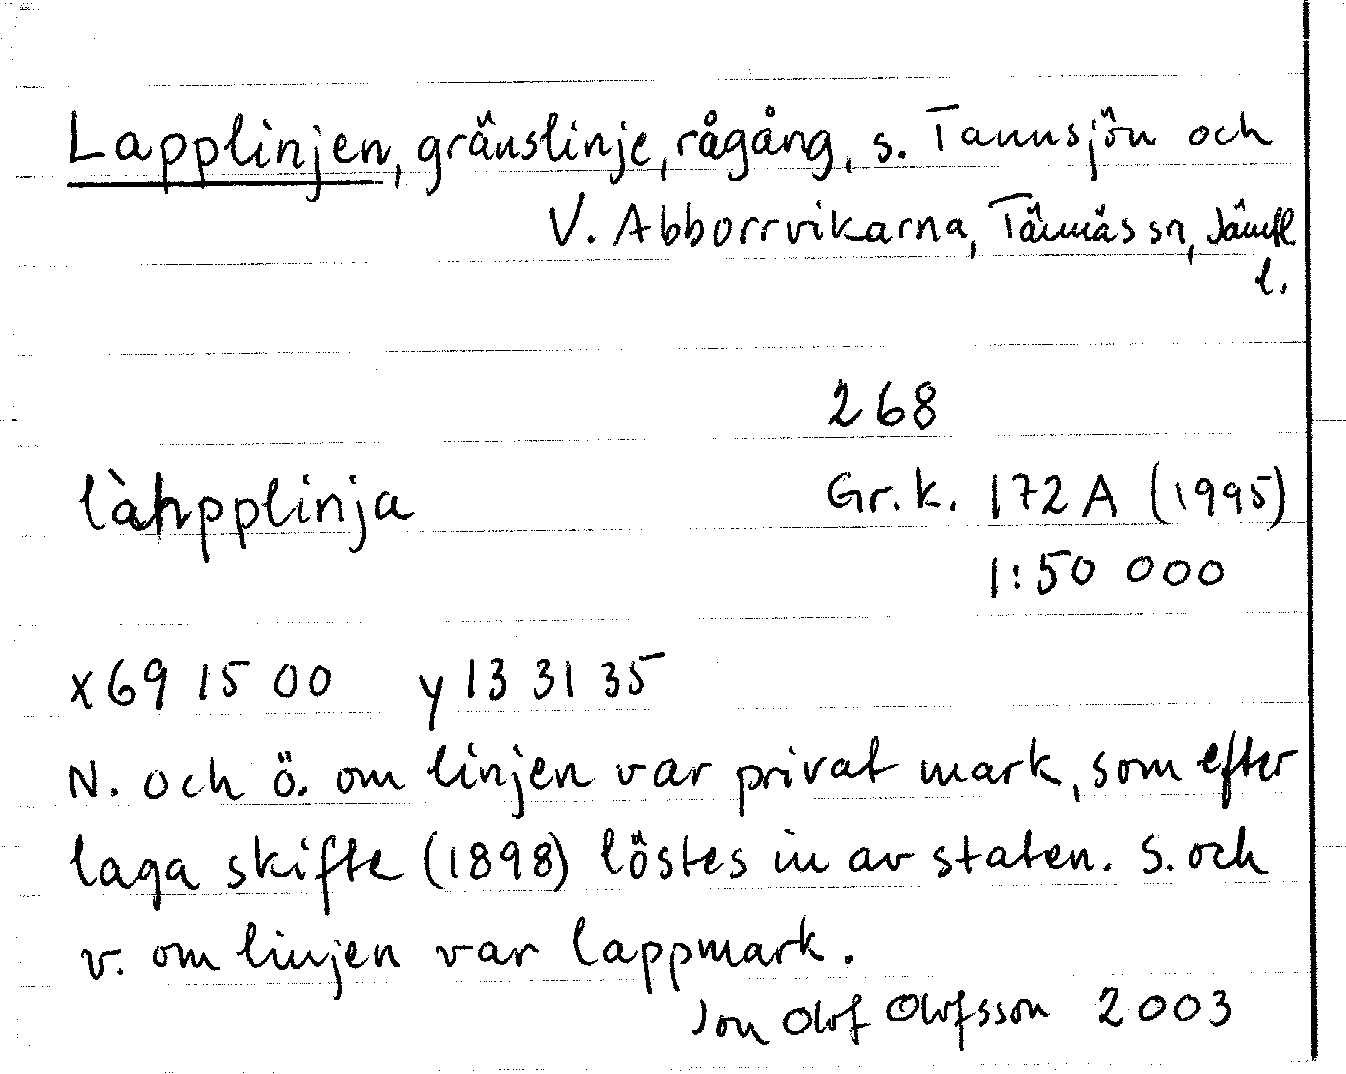 Lapplinjen, gränslinje, rågång, s. Tannsjön och
V. Abborrvikarna, Tännäs sn, Jämtl
l.
268
làhpplinja Gr.k. 172 A (1995)
1:50 000
x 69 15 00 y 13 31 35
N. och ö. om linjen var privat mark, som efter
laga skifte (1898) löstes in av staten. S. och
v. om linjen var lappmark.
Jon Olof Olofsson 2003